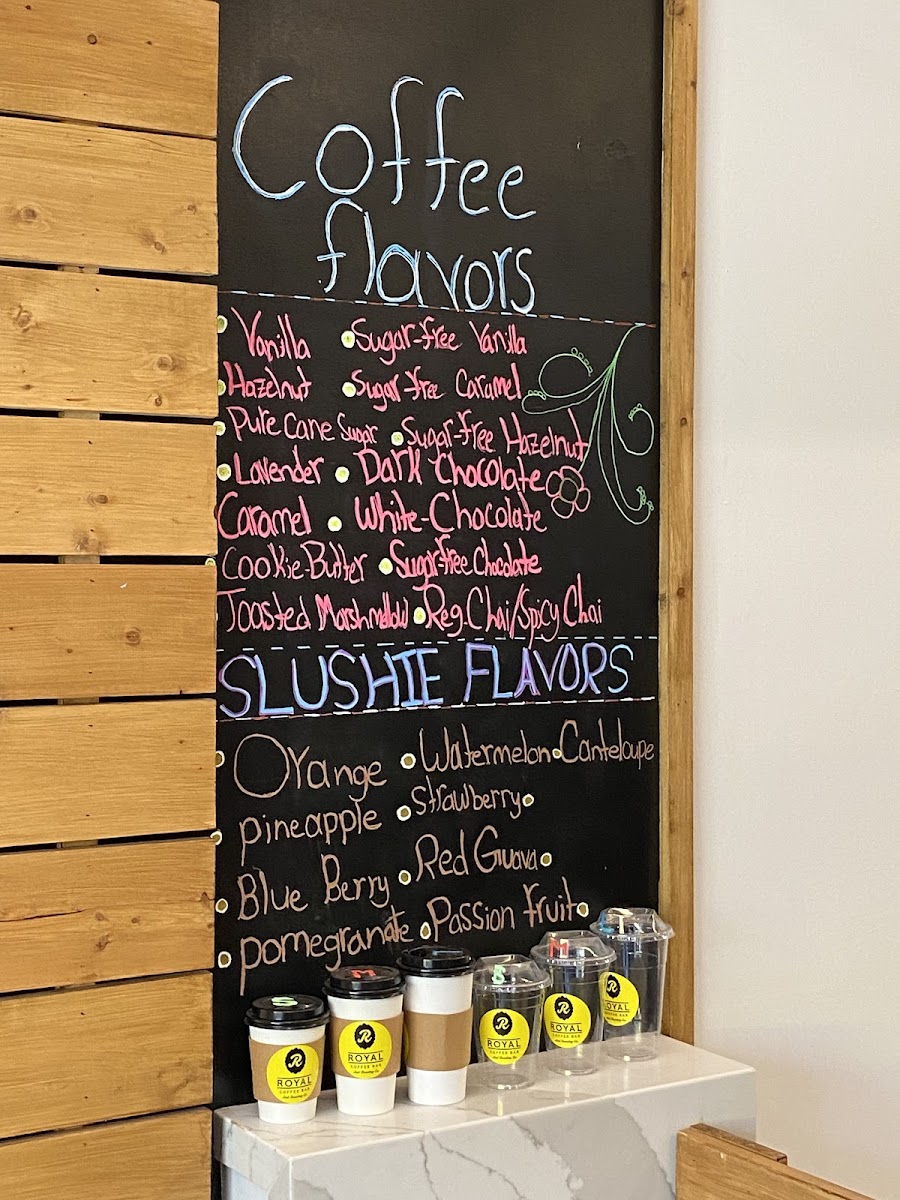 Coffee
flavors
Vanilla • Sugar-free Vanilla
• Hazelnut • Sugar-free Caramel
• Pure Cane Sugar • Sugar-free Hazelnut
• Lavender • Dark Chocolate
Caramel • White-Chocolate
• Cookie-Butter • Sugar-free Chocolate
Toasted Marshmellow • Reg-Chai/Spicy Chai
SLUSHIE FLAVORS
• Orange • Watermelon • Canteloupe
• pineapple • Strawberry •
• Blue Berry • Red Guava •
• pomegranate • Passion fruit •
S M S M L
R
ROYAL
COFFEE BAR
And Roasting Co.
R
ROYAL
COFFEE BAR
And Roasting Co.
R
ROYAL
COFFEE BAR
And Roasting Co.
R
ROYAL
COFFEE BAR
And Roasting Co.
R
ROYAL